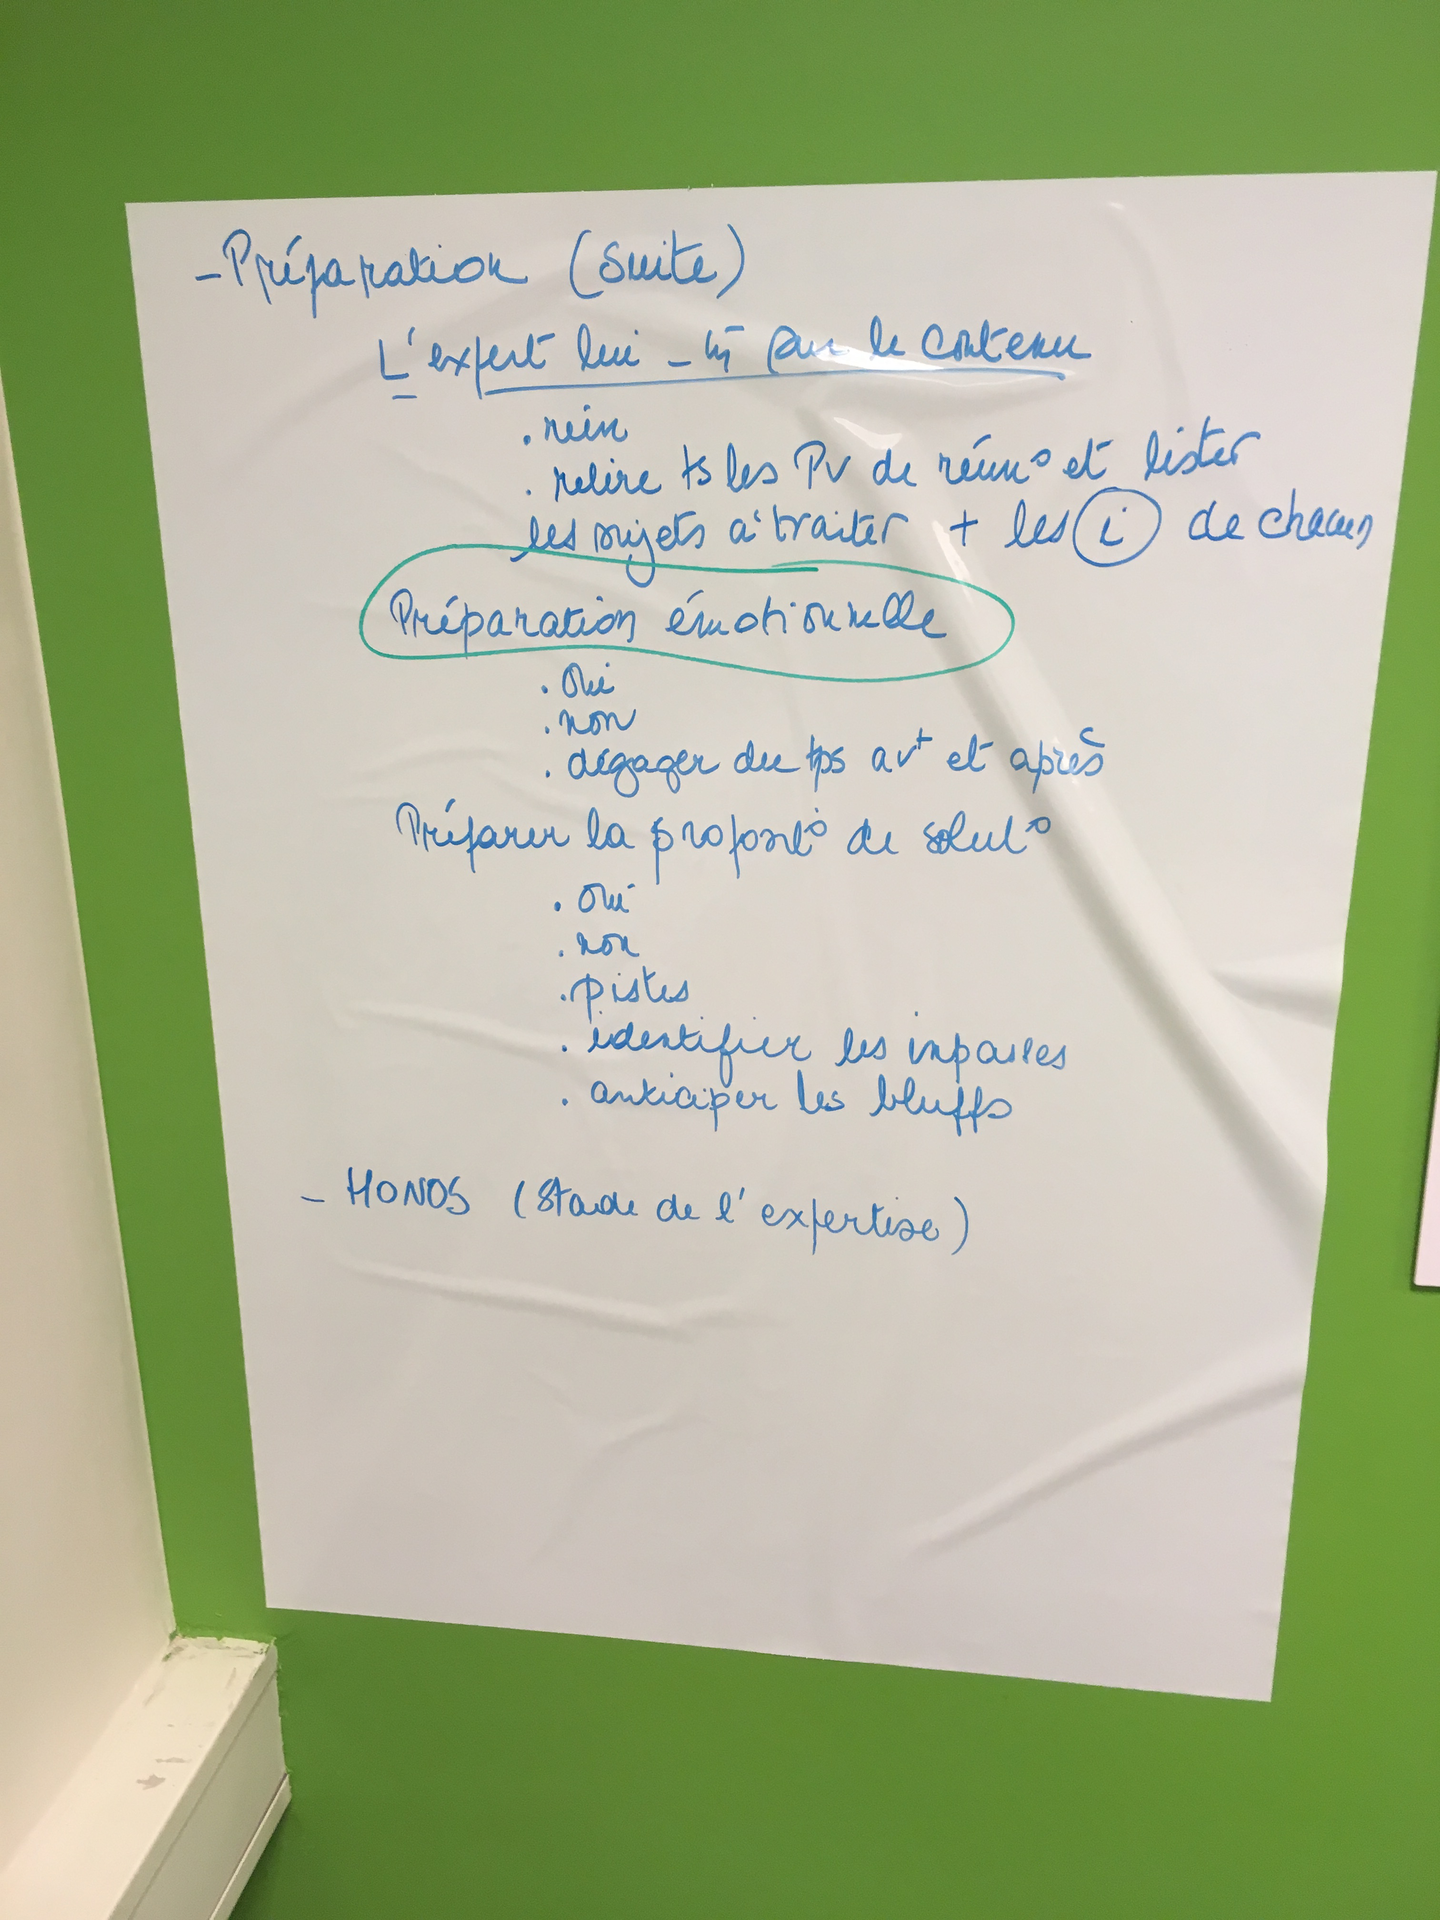 - Préparation (suite)
L'expert lui - m̄ sur le contenu
. rien
. relire ts les PV de réun° et lister
les sujets à traiter + les i de chacun
Préparation émotionnelle
. oui
. non
. dégager du tps avt et après
Préparer la proposit° de solut°
. oui
. non
. pistes
. identifier les impasses
. anticiper les bluffs
- HONOS (Stade de l'expertise)